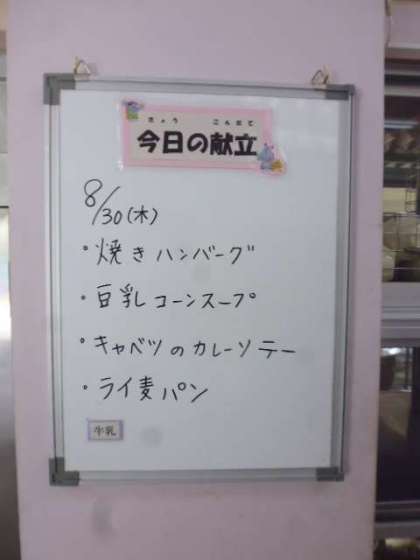 きょう こんだて
今日の献立
8/30(木)
・焼きハンバーグ
・豆乳コーンスープ
・キャベツのカレーソテー
・ライ麦パン
牛乳